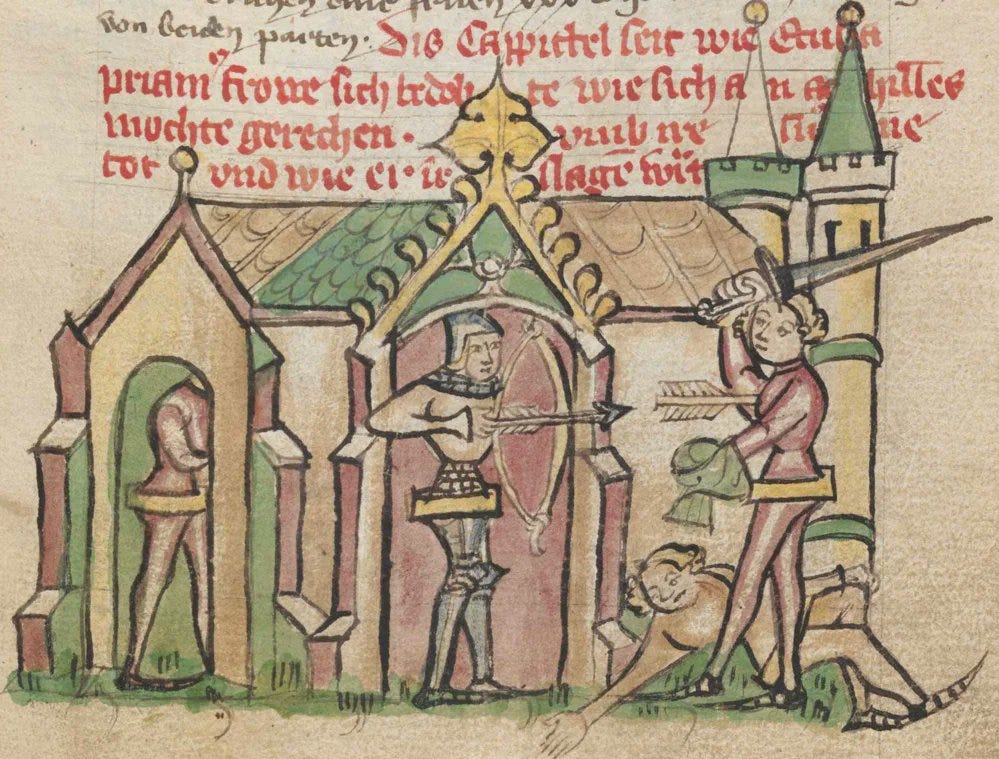 von beiden parten. Dis Cappittel seit wie Ecuba
priam frowe sich bedohte wie sich an achilles
mochte gerechen. vmb ire süne
tot vnd wie er erslagē wirt